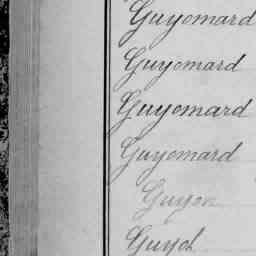 Guyomard
Guyomard
Guyomard
Guyomard
Guyon
Guyot